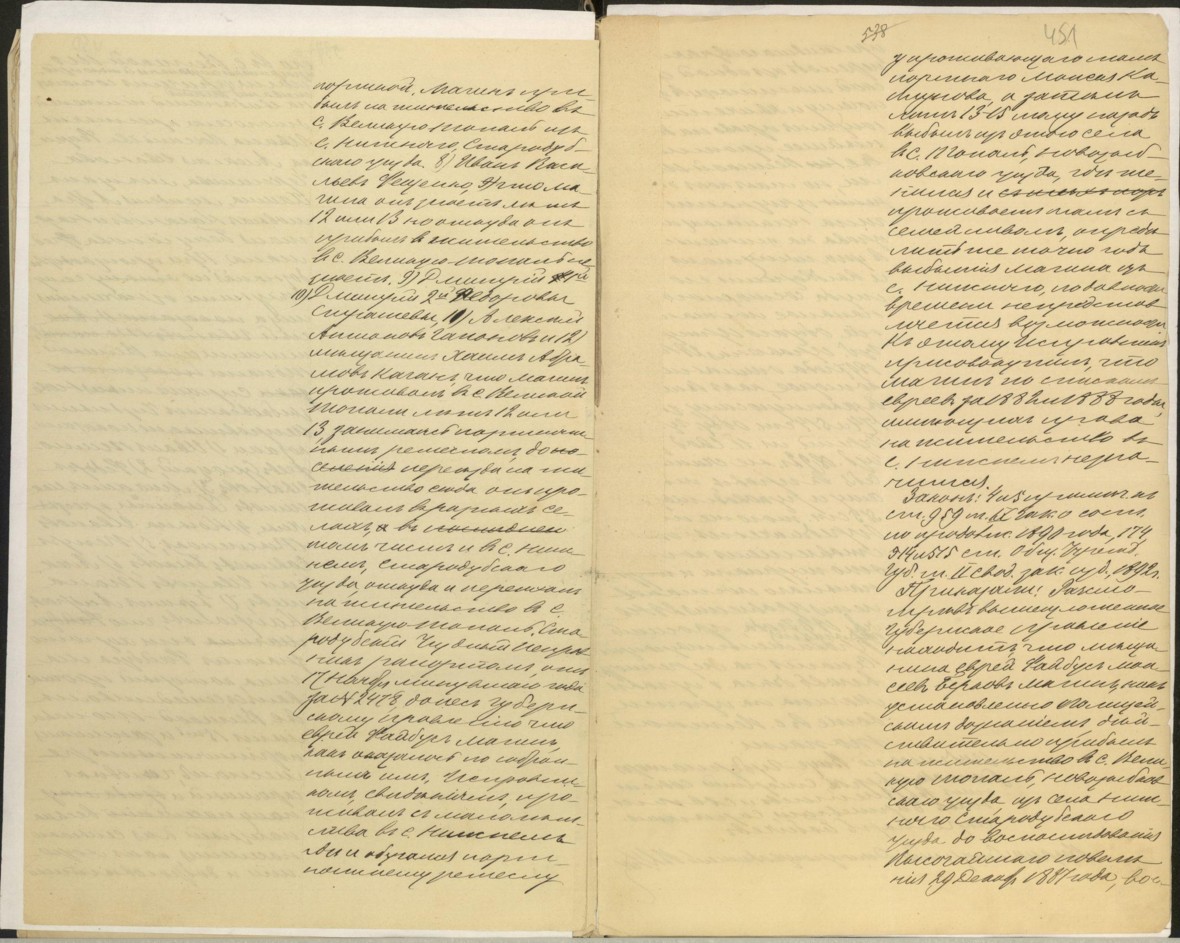 портной, Магинъ при-
былъ на жительство въ
с. Великую Топаль изъ
с. Нижняго, Стародуб-
скаго уѣзда. 8) Иванъ Васи-
льевъ Фещенко, что Ма-
гина онъ знаетъ лѣтъ
12 или 13 но откуда онъ
прибылъ в жительство
въ с. Великую-Топаль не
знаетъ. 9) Дмитрій 1й
10) Дмитрій 2й Федоровы
11) Алексѣй
Антоновъ Гапоновъ и 12)
мѣщанинъ Хаимъ Абра-
мовъ Каганъ, что Магинъ
проживалъ въ с. Великой
Топали лѣтъ 12 или
13 занимаясь портнич-
нымъ ремесломъ до по-
селенія переѣзда на жи-
тельство сюда онъ про-
живалъ въ разныхъ се-
лахъ, а въ послѣднее
томъ числѣ и въ с. Ниж-
немъ, Стародубскаго
уѣзда, откуда и переѣхалъ
на жительство въ с.
Великую-Топаль, Ста-
родубскій Уѣздный Исправ-
никъ рапортомъ, отъ
17 Ноября минувшаго года
за № 2478, донесъ Губерн-
скому Правленію что
еврей Файбусъ Магинъ,
какъ оказалось по собран-
нымъ имъ, Исправни-
комъ, свѣдѣніямъ, про-
живалъ съ малолѣт-
ства въ с. Нижнемъ
гдѣ и обучался порт-
няжному ремеслу
538
451
у проживающаго тамъ
портнаго Моисея Ка-
а затѣмъ
лѣтъ 13-15 тому назадъ
выбылъ изъ этого села
въ с. Топаль, Новозыб-
ковскаго уѣзда, гдѣ же-
нился и съ тѣхъ поръ
проживаетъ тамъ съ
семействомъ, опредѣ-
лить же точно годъ
выбытія Магина изъ
с. Нижняго, по давности
времени не представ-
ляется возможности.
Къ этому Исправникъ
присовокупилъ, что
Магинъ по спискамъ
евреевъ за 1882 и 1888 годы,
имѣющихъ право
на жительство въ
с. Нижнемъ не зна-
чится.
Законъ: 4 и 5 примѣч. къ
ст. 959 т. IX Зак. о сост.
по продолж. 1890 года, 174,
514 и 515 ст. Общ. Учрежд.
Губ. т. II Свод. зак. изд. 1892 г.
Приказали: Разсмо-
трѣвъ вышеизложенное
Губернское Правленіе
находитъ, что мѣща-
нинъ еврей Файбусъ Мов-
шевъ Берковъ Магинъ, какъ
установлено полицей-
скимъ дознаніемъ дѣй-
ствительно прибылъ
на жительство въ с. Вели-
кую Топаль, Новозыбков-
скаго уѣзда изъ села Ниж-
няго Стародубскаго
уѣзда до воспослѣдованія
Высочайшаго повелѣ-
нія 29 Декабр. 1887 года, вос-